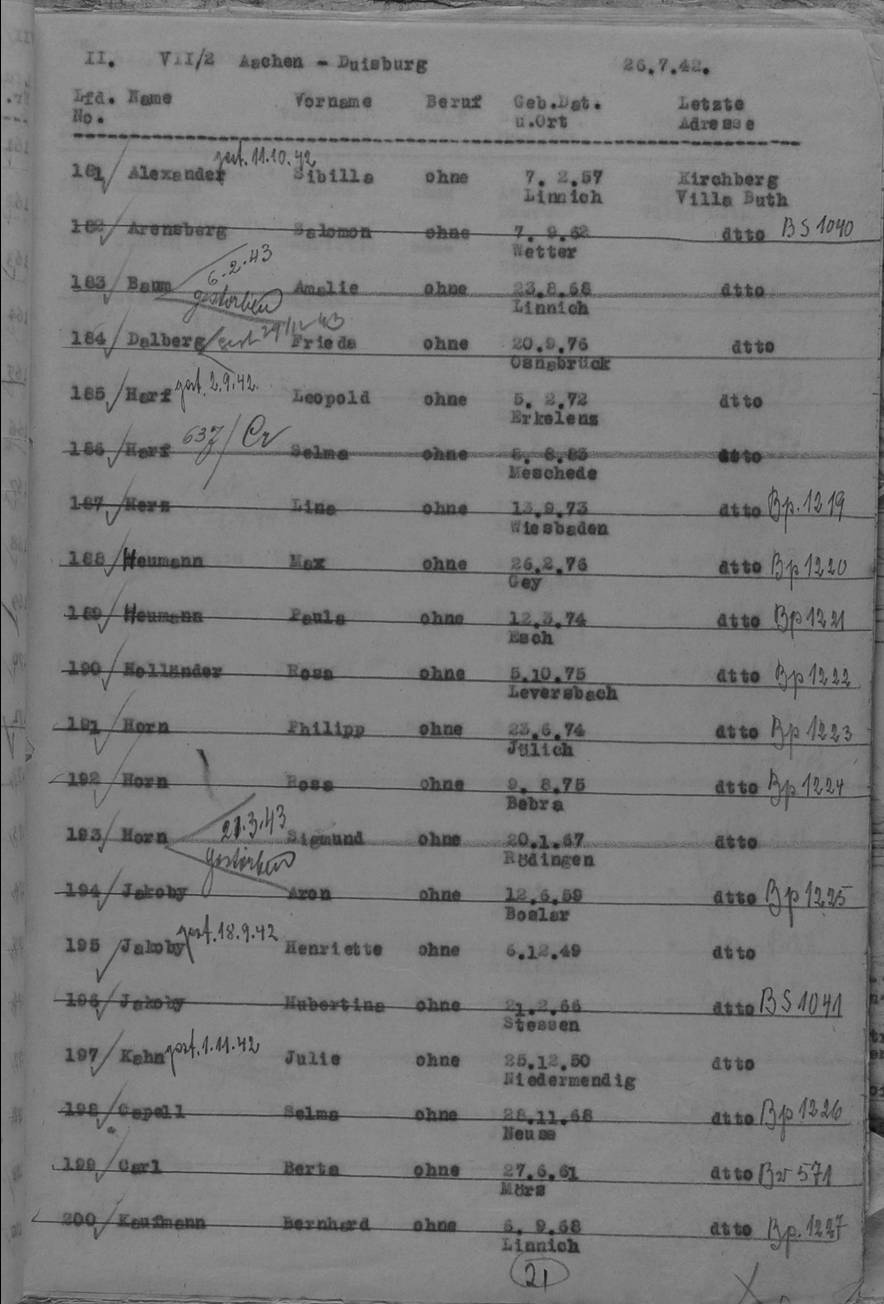 II. VII/2 Aachen - Duisburg 26.7.42.
Lfd. Name Vorname Beruf Geb.Dat. Letzte
No. u.Ort Adresse
gest. 11.10.42
181 Alexander Sibilla ohne 7. 2.57 Kirchberg
Linnich Villa Buth
182 Arensberg Salomon ohne 7. 9.62 dtto BS 1040
Wetter
6.2.43
183 Baum Amalie ohne 23.8.68 dtto
gestorben Linnich
184 Dalberg gest 29/ 43 Frieda ohne 20.9.76 dtto
Osnabrück
185 Harf gest. 2.9.42. Leopold ohne 5. 2.72 dtto
Erkelens
186 Harf 637/Cv Selma ohne dtto
Meschede
187 Herz Line ohne 13.9.73 dtto Bp.1219
Wiesbaden
188 Heumann Max ohne 26.2.76 dtto Bp 1220
Gey
189 Heumann Paula ohne 12.3.74 dtto Bp 1221
Esch
190 Holländer Rosa ohne 5.10.75 dtto Bp 1222
Leversbach
191 Horn Philipp ohne 23.6.74 dtto Bp 1223
Jülich
192 Horn Rosa ohne 9. 8.75 dtto Bp 1224
Bebra
21.3.43
193 Horn Sigmund ohne 20.1.67 dtto
gestorben Rödingen
194 Jakoby Aron ohne 12.6.59 dtto Bp 1225
Boslar
195 Jakoby gest. 18.9.42 Henriette ohne 6.12.49 dtto
196 Jakoby Hubertine ohne 21.2.66 dtto BS 1041
Stessen
197 Kahn gest. 1.11.42 Julie ohne 25.12.50 dtto
Niedermendig
198 Capell Selma ohne 28.11.68 dtto Bp 1226
Neuss
199 Carl Berta ohne 27.6.61 dtto Bv 571
Mörs
200 Kaufmann Bernhard ohne 6. 9.68 dtto Bp.1227
Linnich
21